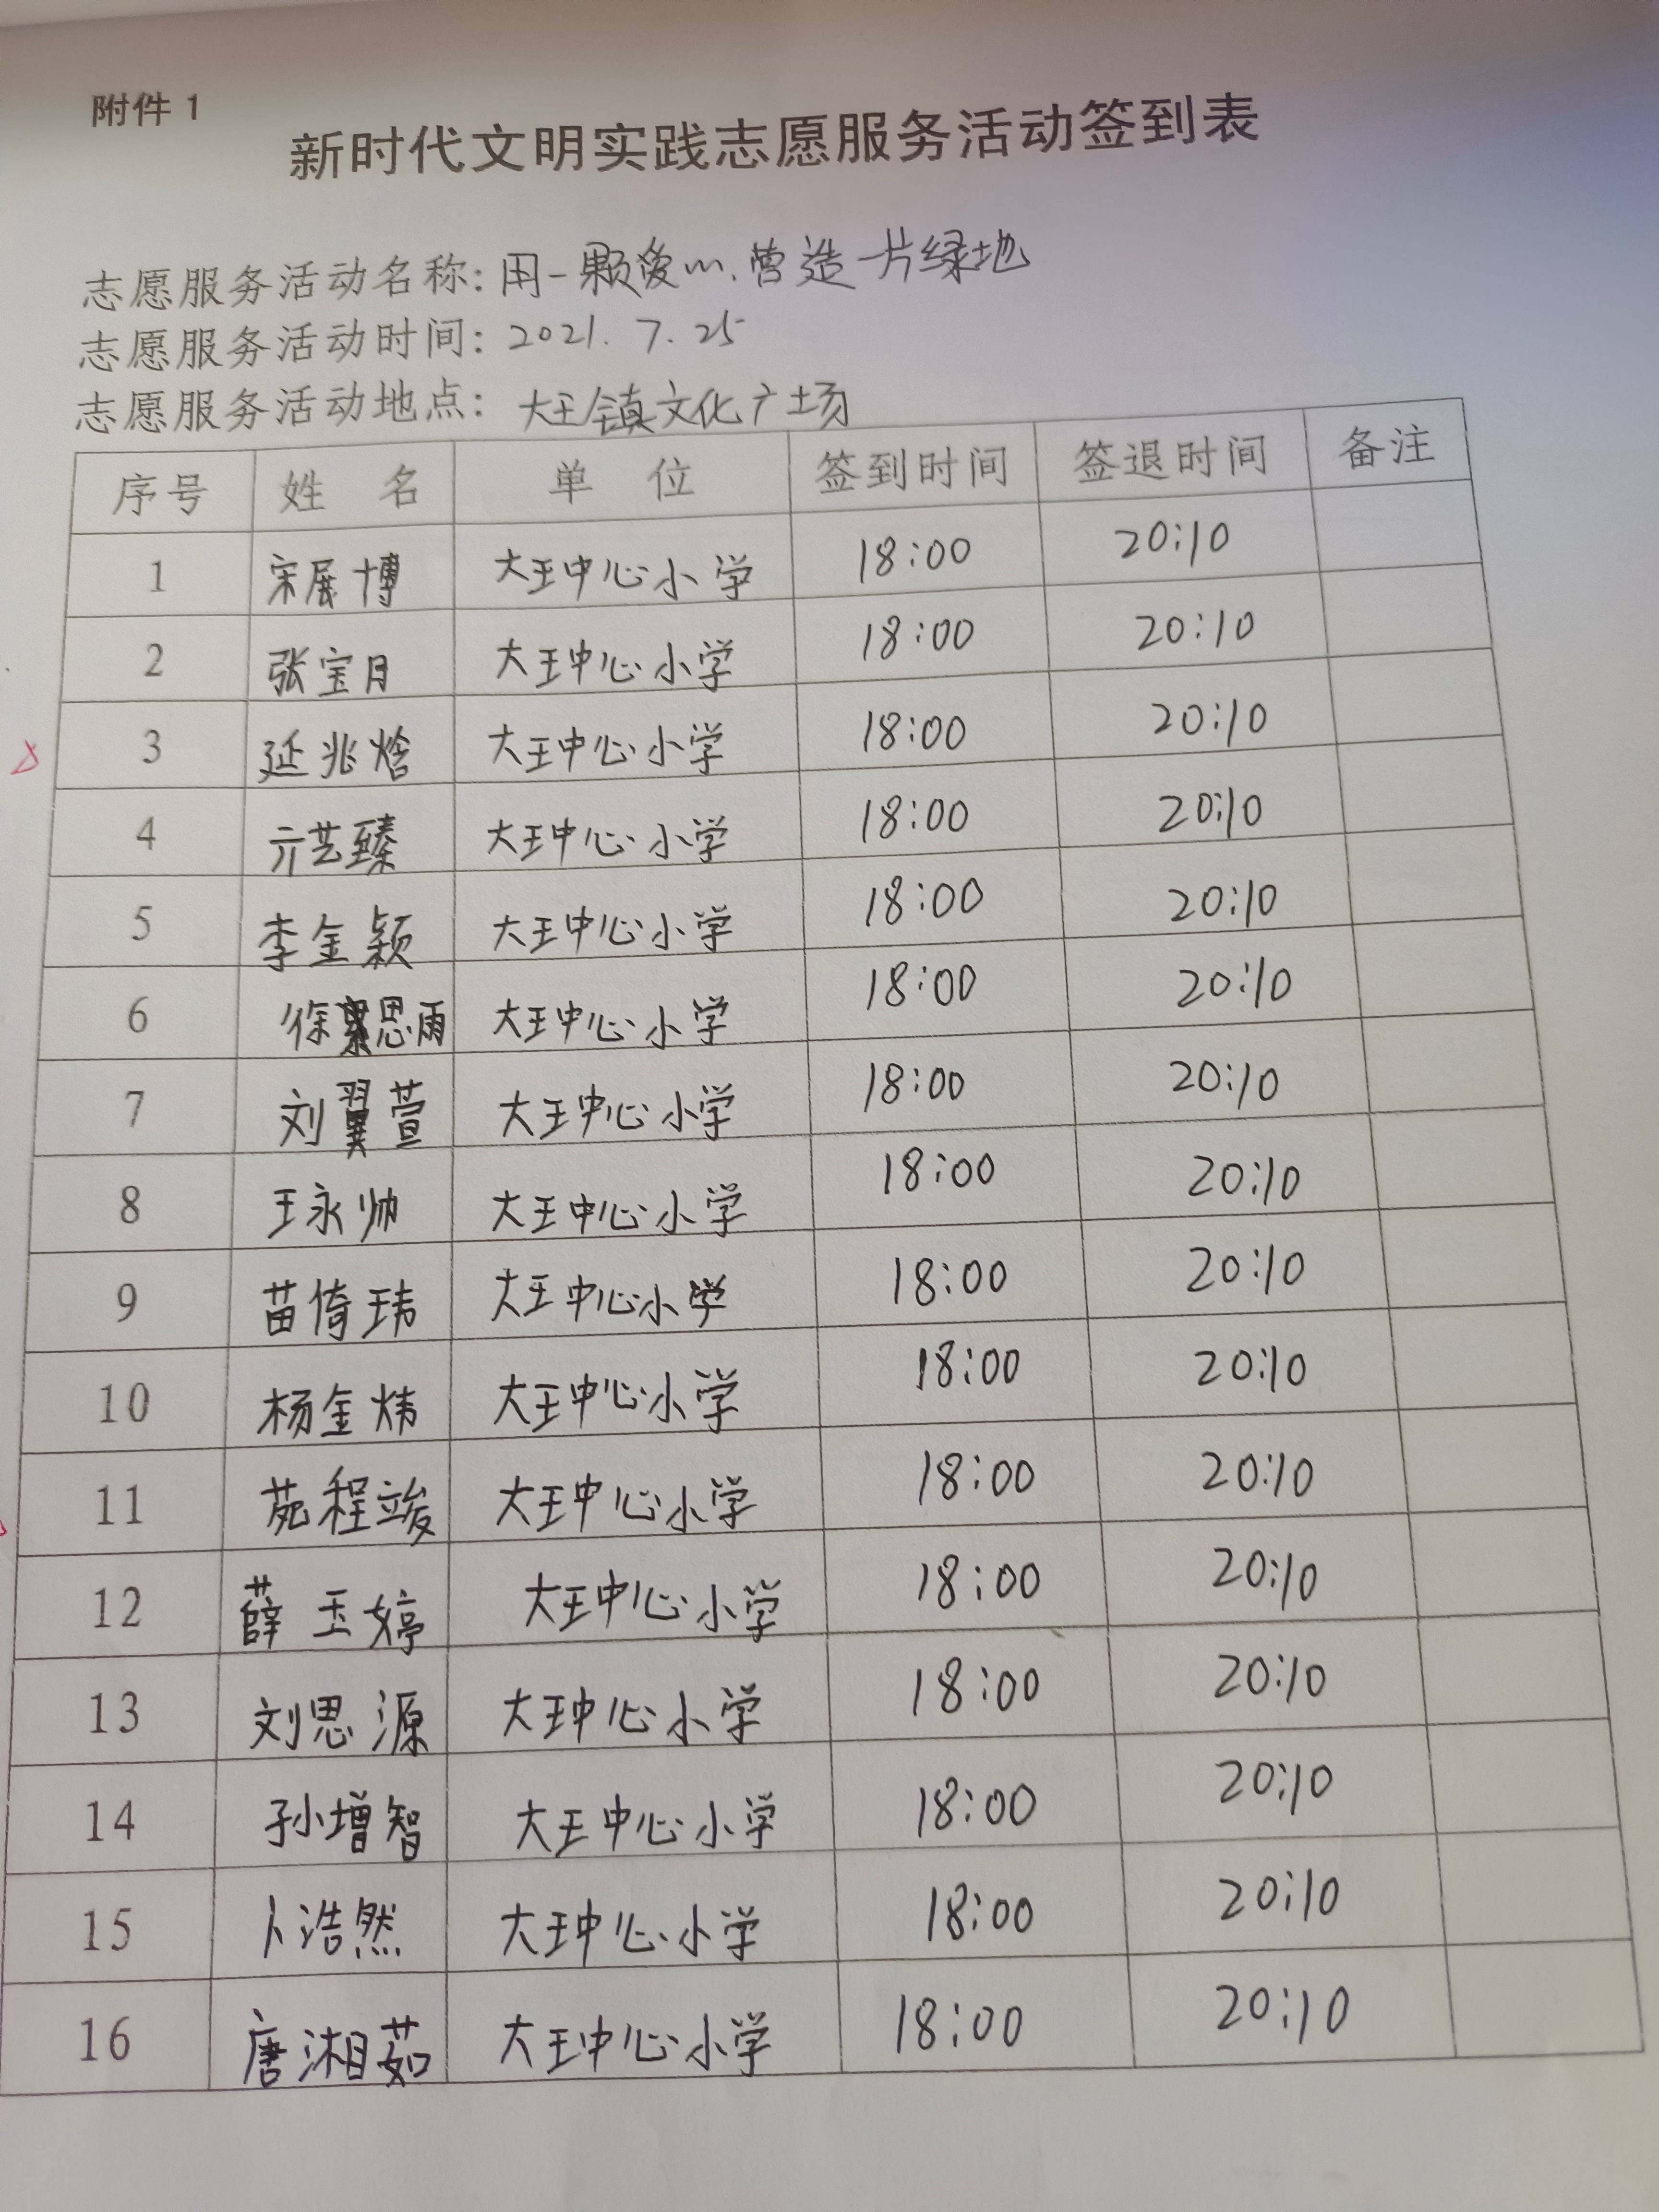 附件1
新时代文明实践志愿服务活动签到表
志愿服务活动名称：用一颗爱心，营造一片绿地
志愿服务活动时间：2021.7.25
志愿服务活动地点：大王镇文化广场
序号 姓 名 单 位 签到时间 签退时间 备注
1 宋展博 大王中心小学 18:00 20:10
2 张宝月 大王中心小学 18:00 20:10
3 延兆焓 大王中心小学 18:00 20:10
4 亓艺臻 大王中心小学 18:00 20:10
5 李金颖 大王中心小学 18:00 20:10
6 徐思雨 大王中心小学 18:00 20:10
7 刘翼萱 大王中心小学 18:00 20:10
8 王永帅 大王中心小学 18:00 20:10
9 苗倚玮 大王中心小学 18:00 20:10
10 杨金炜 大王中心小学 18:00 20:10
11 苑程竣 大王中心小学 18:00 20:10
12 薛玉婷 大王中心小学 18:00 20:10
13 刘思源 大王中心小学 18:00 20:10
14 孙增智 大王中心小学 18:00 20:10
15 卜浩然 大王中心小学 18:00 20:10
16 唐湘茹 大王中心小学 18:00 20:10